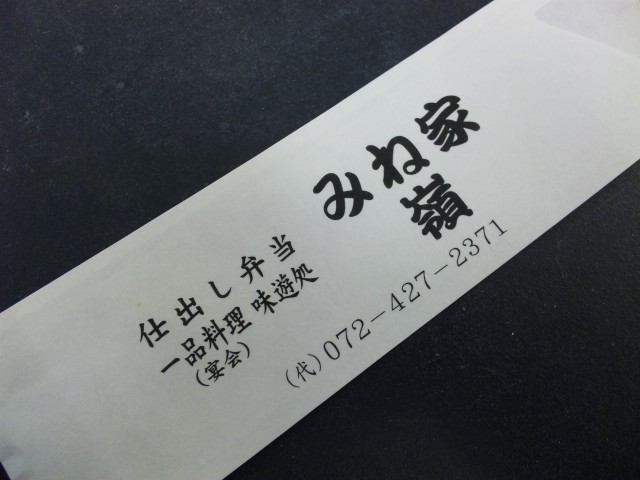 仕出し弁当
一品料理 味遊処
(宴会)
みね家
嶺
(代)072-427-2371